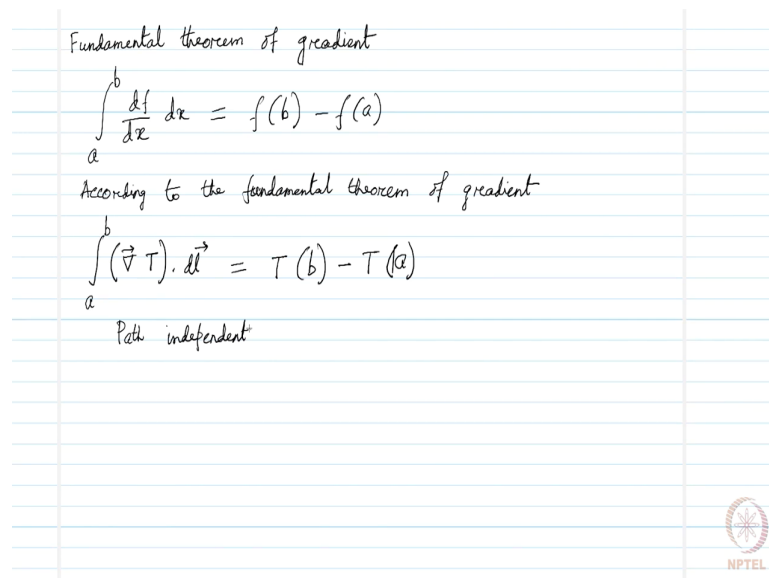 Fundamental theorem of gradient
∫_a^b df/dx dx = f(b) - f(a)
According to the fundamental theorem of gradient
∫_a^b (∇⃗ T). dl⃗ = T(b) - T(a)
Path independent
NPTEL